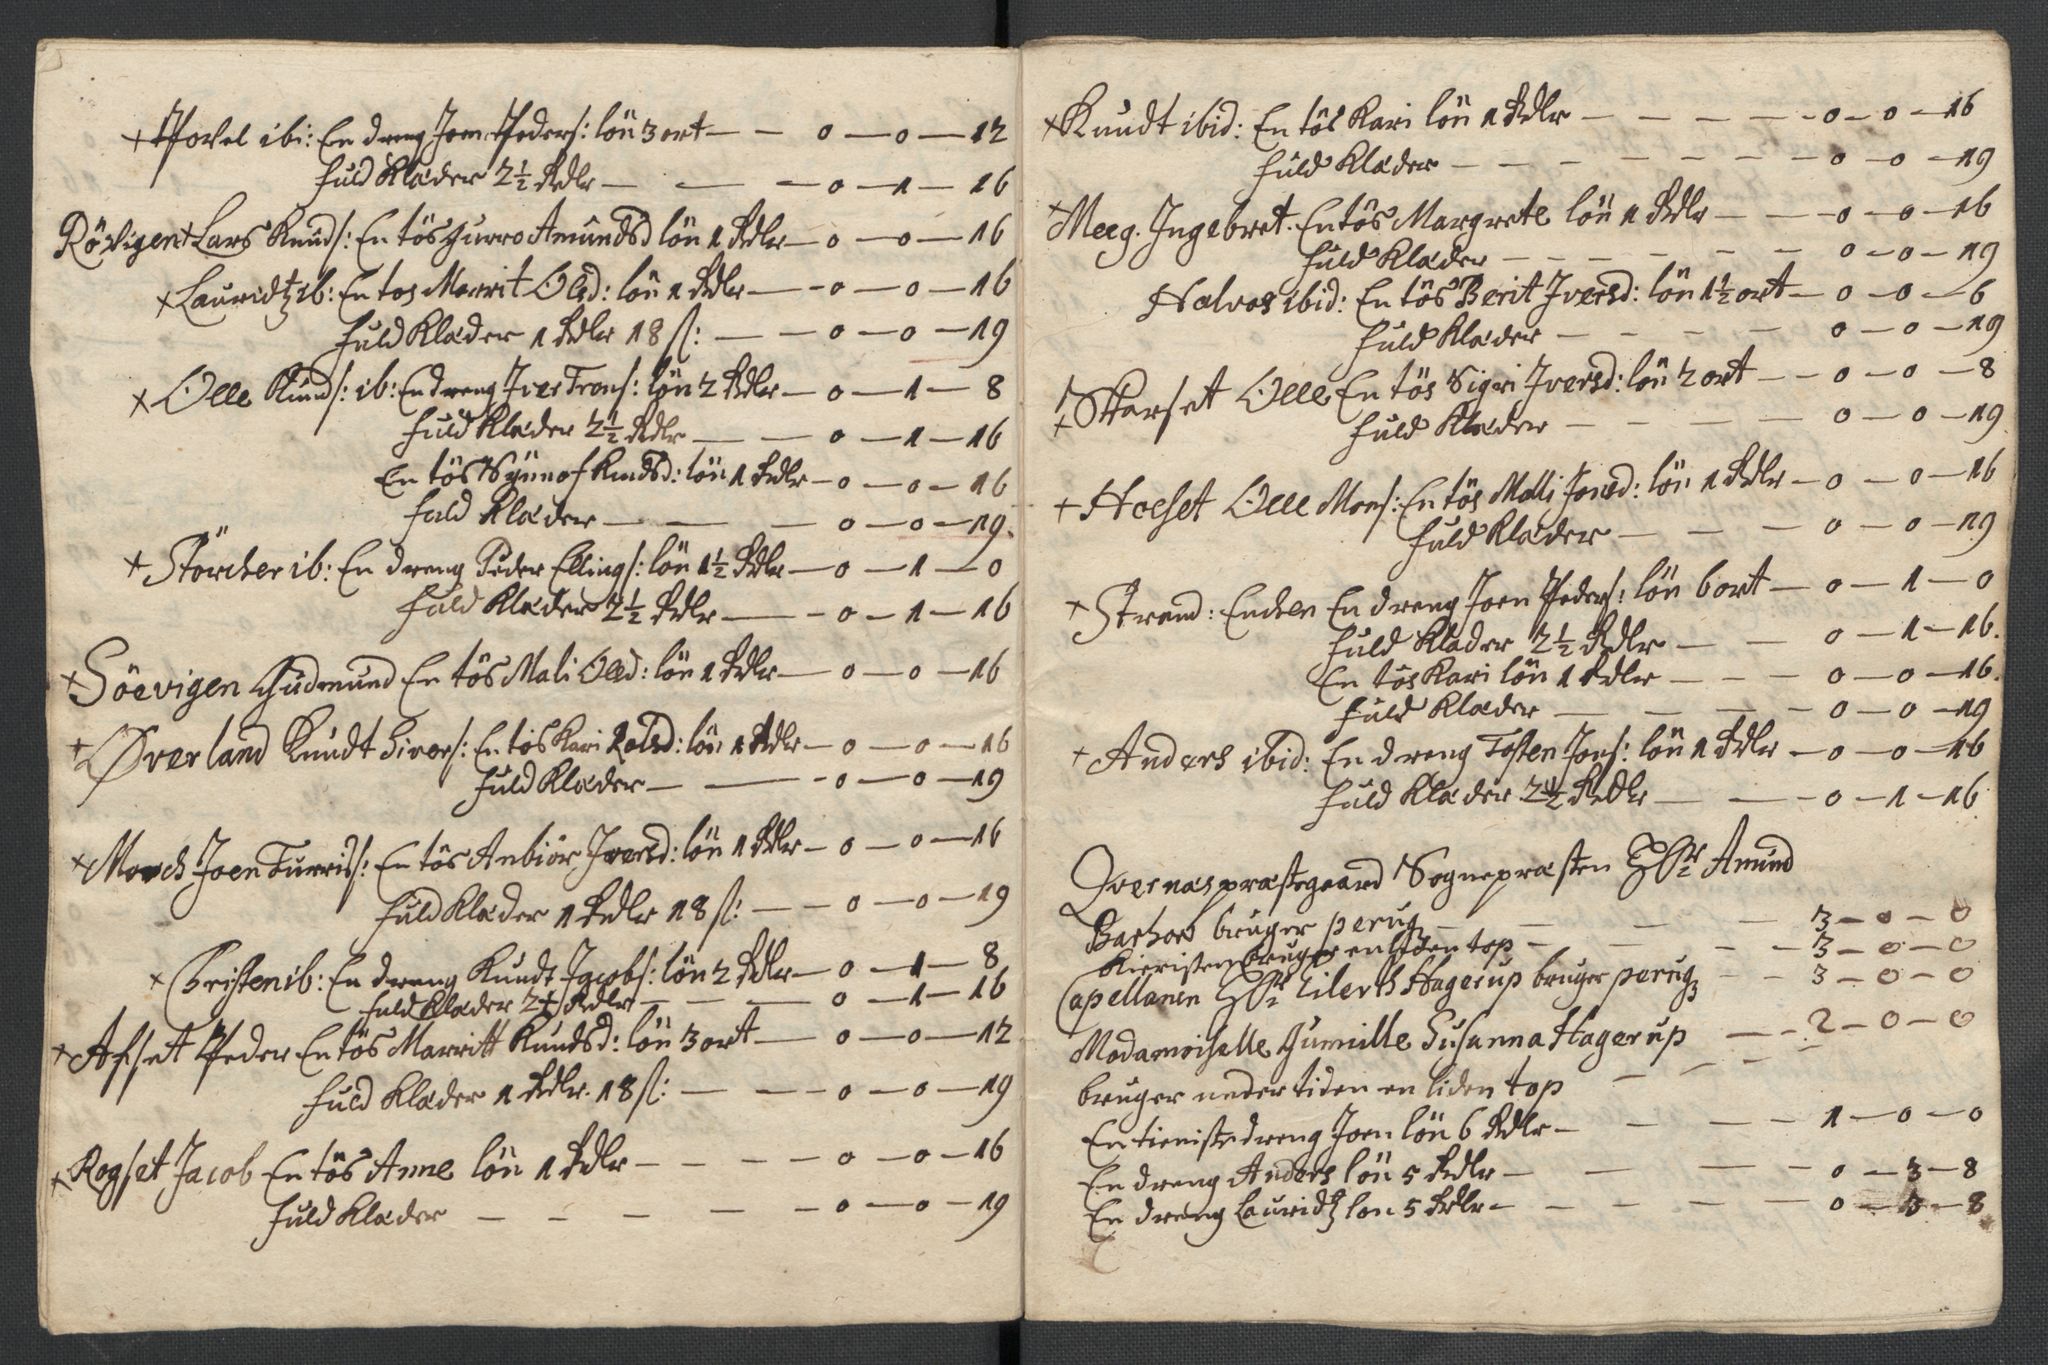 + Povel ibi: En dreng Joen Peders: lön 3 ort — — 0 — 0 — 12
fuld Klæder 2½ Rdlr — — — 0 — 1 — 16
Rövigen + Lars Knuds: En tös Gurro Amundsd lön 1 Rdlr — 0 — 0 — 16
+ Lauridtz ib: En tos Marrit Olsd: lön 1 Rdlr — 0 — 0 — 16
fuld Klæder 1 Rdlr 18 s: — — 0 — 0 — 19
+ Olle Knuds: ib: En dreng Iver Trons: lön 2 Rdlr — 0 — 1 — 8
fuld Klæder 2½ Rdlr — — 0 — 1 — 16
En tös Synnof Knudsd: lön 1 Rdlr — 0 — 0 — 16
fuld Klæder — — — 0 — 0 — 19.
+ Störcher ib: En dreng Peder Ellings: lön 1½ Rdlr — 0 — 1 — 0
fuld Klæder 2½ Rdlr — — 0 — 1 — 16
+ Söevigen Gudmund En tös Mali Olsd: lön 1 Rdlr — 0 — 0 — 16
+ Øverland Knudt Sivers: En tös Kari Rolsd: lön 1 Rdlr — 0 — 0 — 16
fuld Klæder — — — 0 — 0 — 19
+ Morch Joen Turris: En tös Anbiör Iversd: lön 1 Rdlr — 0 — 0 — 16
fuld Klæder 1 Rdlr 18 s: — — 0 — 0 — 19
+ Christen ib: En dreng Knudt Jacobs: lön 2 Rdlr — 0 — 1 — 8
fuld Klæder 2½ Rdlr — — — 0 — 1 — 16
+ Afset Peder En tös Marritt Knudsd: lön 3 ort — 0 — 0 — 12
fuld Klæder 1 Rdlr. 18 s: — — 0 — 0 — 19
+ Rogset Jacob En tös Anne lön 1 Rdlr — — — — 0 — 0 — 16
fuld Klæder — — — — — 0 — 0 — 19
+ Knudt ibid: En tös Kari lön 1 Rdlr — — — — — 0 — 0 — 16
fuld Klæder — — — — — — — 0 — 0 — 19
+ Meeg. Ingebret. En tös Margrete lön 1 Rdlr — — 0 — 0 — 16
fuld Klæder — — — — — — 0 — 0 — 19
Halvor ibid: En tös Berit Iversd: lön 1½ ort — 0 — 0 — 6
fuld Klæder — — — — 0 — 0 — 19
+ Skarset Olle En tös Sigri Iversd: lön 2 ort — — 0 — 0 — 8
fuld Klæder — — — — 0 — 0 — 19
+ Hoeset Olle Mons: En tös Malli Jonsd: lön 1 Rdlr — 0 — 0 — 16
fuld Klæder — — — 0 — 0 — 19
+ Strand: Enchen En dreng Joen Peders: lön 6 ort — 0 — 1 — 0
fuld Klæder 2½ Rdlr — — 0 — 1 — 16.
En tös Kari lön 1 Rdlr — — — 0 — 0 — 16.
fuld Klæder — — — — 0 — 0 — 19
+ Anders ibid: En dreng Tosten Jons: lön 1 Rdlr — 0 — 0 — 16
fuld Klæder 2½ Rdlr — — — 0 — 1 — 16
Qvernæs præstegaard Sognepræsten Hr Amund
Barhow bruger perug — — — — 3 — 0 — 0
Kieristen bruger en liden top — — — — 3 — 0 — 0
Capellanen Hr Eilerth Hagerup bruger perug — — 3 — 0 — 0
Madamoiselle Gunnille Susanna Hagerup — — 2 — 0 — 0
bruger under tiden en liden top — — —
En tieniste dreng Joen lön 6 Rdlr — — — — 1 — 0 — 0
En dreng Anders lön 5 Rdlr — — — — 0 — 3 — 8
En dreng Lauridtz lon 5 Rdlr — — — — 0 — 3 — 8